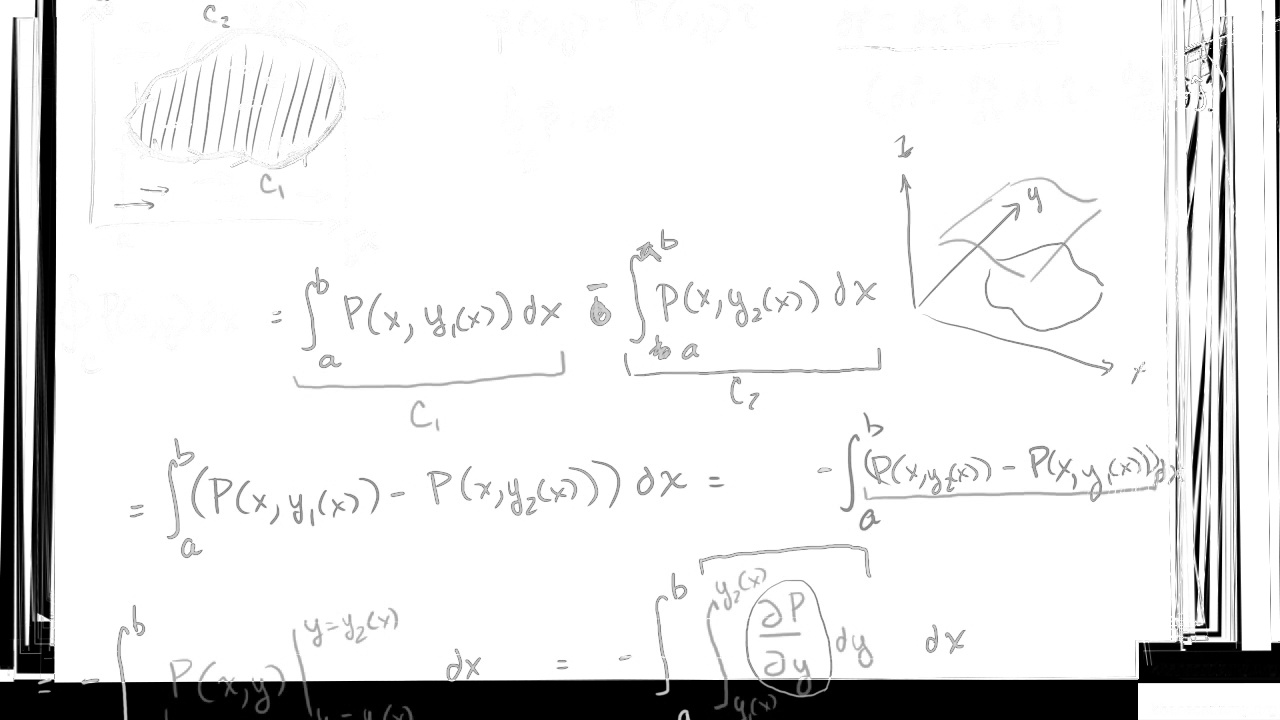 C₂
C₁
y
= ∫ₐᵇ P(x, y₁(x)) dx − ∫ₐᵇ P(x, y₂(x)) dx
C₁ C₂
= ∫ₐᵇ (P(x, y₁(x)) − P(x, y₂(x))) dx = − ∫ₐᵇ (P(x, y₂(x)) − P(x, y₁(x))) dx
= − ∫ᵇ P(x, y) | y = y₂(x) y = y₁(x) dx = − ∫ₐᵇ ∫ y₂(x) y₁(x) ∂P/∂y dy dx